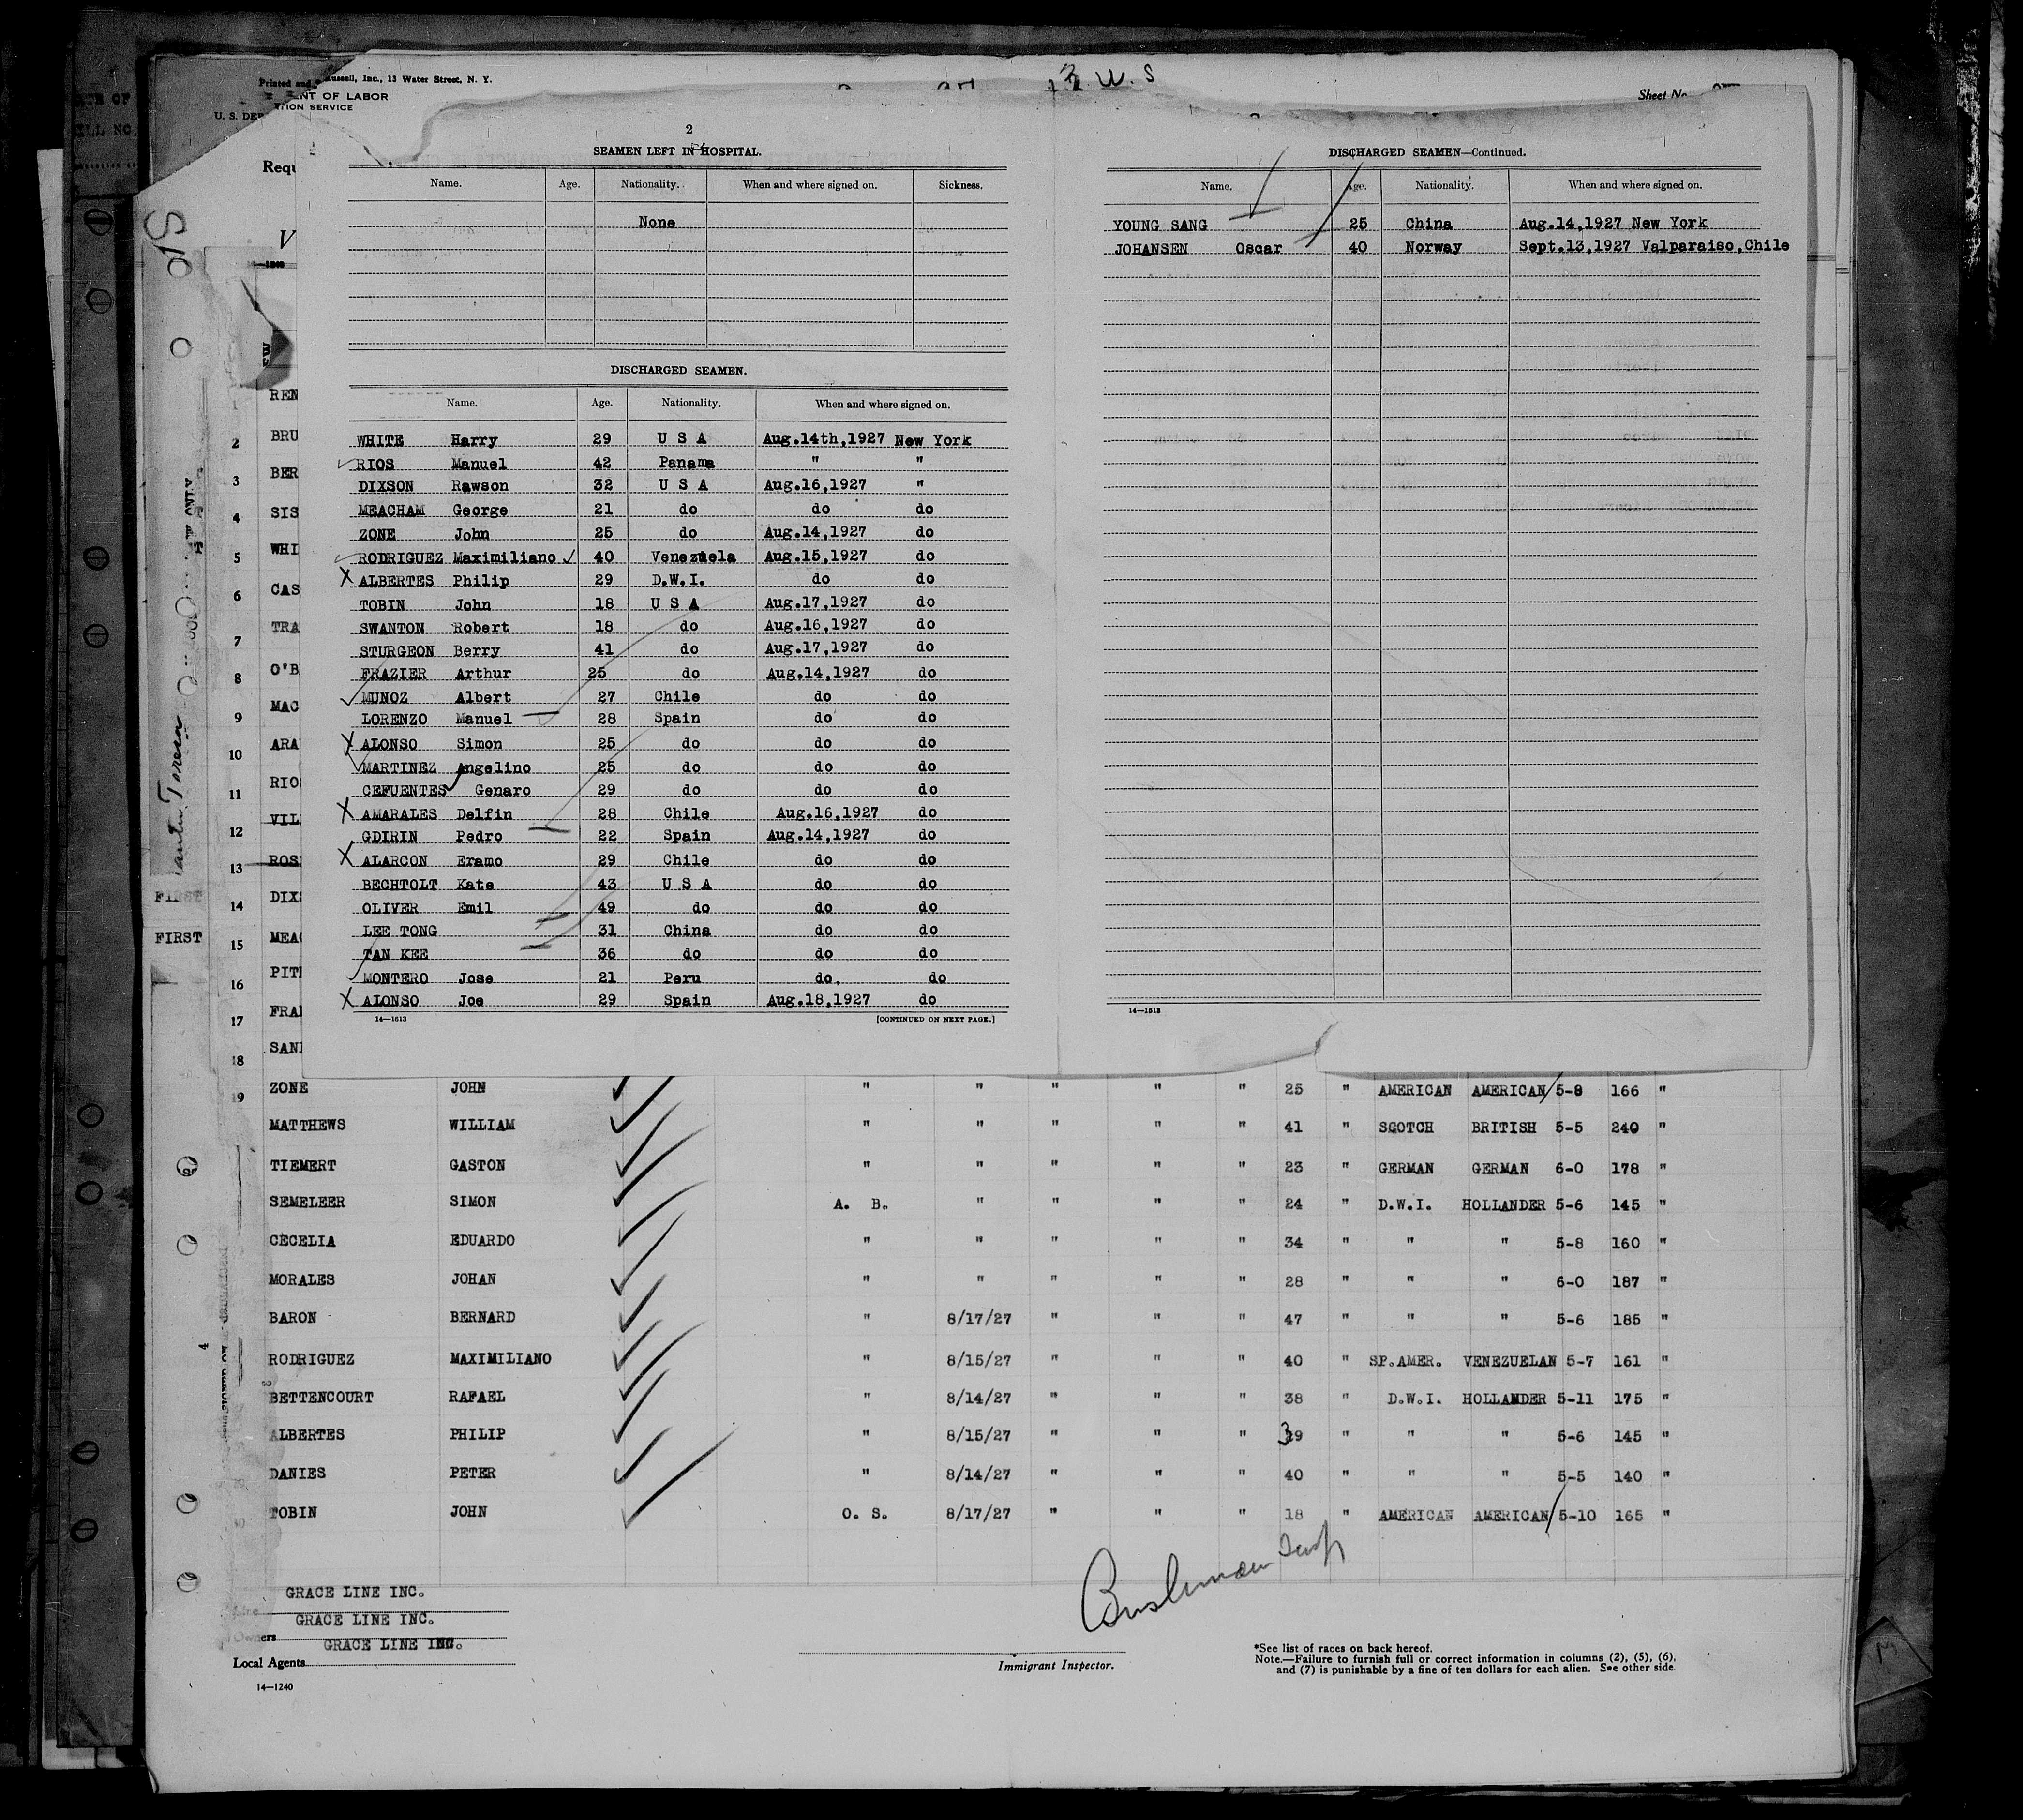 Printed and
ussell, Inc., 13 Water Street, N. Y.
ENT OF LABOR
TION SERVICE
U. S. DEP
W. S
Sheet No
Requ
2
SEAMEN LEFT IN HOSPITAL.
Name. Age. Nationality. When and where signed on. Sickness.
None
DISCHARGED SEAMEN.
Name. Age. Nationality. When and where signed on.
WHITE Harry 29 U S A Aug.14th,1927 New York
RIOS Manuel 42 Panama " "
DIXSON Rawson 32 U S A Aug.16,1927 "
MEACHAM George 21 do do do
ZONE John 25 do Aug.14,1927 do
RODRIGUEZ Maximiliano 40 Venezuela Aug.15,1927 do
X ALBERTES Philip 29 D.W.I. do do
TOBIN John 18 U S A Aug.17,1927 do
SWANTON Robert 18 do Aug.16,1927 do
STURGEON Berry 41 do Aug.17,1927 do
FRAZIER Arthur 25 do Aug.14,1927 do
MUNOZ Albert 27 Chile do do
LORENZO Manuel 28 Spain do do
X ALONSO Simon 25 do do do
MARTINEZ Angelino 25 do do do
CEFUENTES Genaro 29 do do do
X AMARALES Delfin 28 Chile Aug.16,1927 do
GDIRIN Pedro 22 Spain Aug.14,1927 do
X ALARCON Eramo 29 Chile do do
BECHTOLT Kate 43 U S A do do
OLIVER Emil 49 do do do
LEE TONG 31 China do do
TAN KEE 36 do do do
MONTERO Jose 21 Peru do, do
X ALONSO Joe 29 Spain Aug.18,1927 do
14—1613 [CONTINUED ON NEXT PAGE.]
DISCHARGED SEAMEN—Continued.
Name. Age. Nationality. When and where signed on.
YOUNG SANG 25 China Aug.14,1927 New York
JOHANSEN Oscar 40 Norway Sept.13,1927 Valparaiso,Chile
14—1613
REN
2 BRU
3 BER
4 SIS
5 WHI
6 CAS
7 TRA
8 O'B
9 MAC
10 ARA
11 RIOS
12 VIL
13 ROS
FIRST 14 DIXS
FIRST 15 MEAC
16 PIT
17 FRA
18 SAN
19 ZONE JOHN " " " " " 25 " AMERICAN AMERICAN 5-8 166 "
MATTHEWS WILLIAM " " " " " 41 " SCOTCH BRITISH 5-5 240 "
TIEMERT GASTON " " " " " 23 " GERMAN GERMAN 6-0 178 "
SEMELEER SIMON A. B. " " " " 24 " D.W.I. HOLLANDER 5-6 145 "
CECELIA EDUARDO " " " " " 34 " " " 5-8 160 "
MORALES JOHAN " " " " " 28 " " " 6-0 187 "
BARON BERNARD " 8/17/27 " " " 47 " " " 5-6 185 "
RODRIGUEZ MAXIMILIANO " 8/15/27 " " " 40 " SP.AMER. VENEZUELAN 5-7 161 "
BETTENCOURT RAFAEL " 8/14/27 " " " 38 " D.W.I. HOLLANDER 5-11 175 "
ALBERTES PHILIP " 8/15/27 " " " 39 " " " 5-6 145 "
DANIES PETER " 8/14/27 " " " 40 " " " 5-5 140 "
TOBIN JOHN O. S. 8/17/27 " " " 18 " AMERICAN AMERICAN 5-10 165 "
GRACE LINE INC.
GRACE LINE INC.
Owners
GRACE LINE INC.
Local Agents
14—1240
Immigrant Inspector.
*See list of races on back hereof.
Note.—Failure to furnish full or correct information in columns (2), (5), (6),
and (7) is punishable by a fine of ten dollars for each alien. See other side.